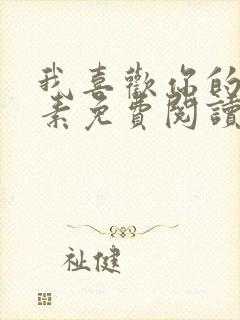 我喜歡你的
素免費閱讀
祉健